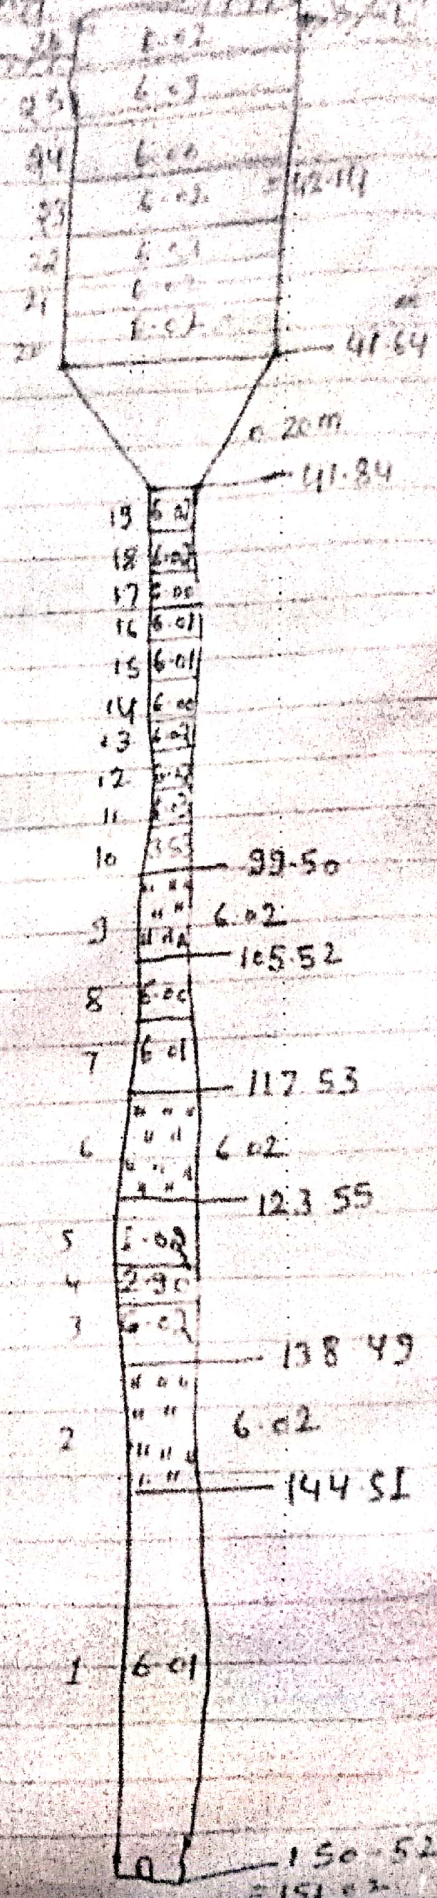 25 6.03
24 6.00
23 6.02 = 42.14
22
21
20 6.02
41.64
0.20m
41.84
19 6.02
18 6.02
17 6.00
16 6.01
15 6.01
14 6.00
13 6.02
12
11
10
99.50
9 6.02
105.52
8 6.00
7 6.01
117.53
6 6.02
123.55
5 6.02
4 2.90
3 6.02
138.49
2 6.02
144.51
1 6.01
150-52